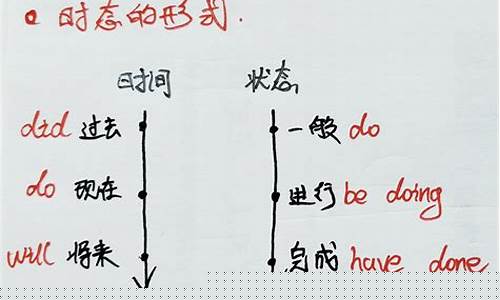 时态的形式.
时间 状态
did 过去 一般 do
do 现在 进行 be doing
will 将来 完成 have done